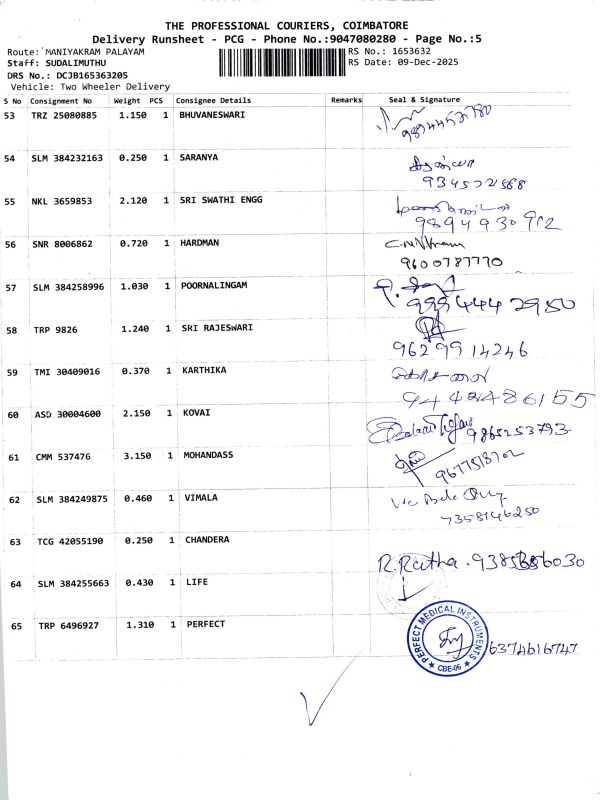 THE PROFESSIONAL COURIERS, COIMBATORE
Delivery Runsheet - PCG - Phone No.:9047080280 - Page No.:5
Route: MANIYAKRAM PALAYAM RS No.: 1653632
Staff: SUDALIMUTHU RS Date: 09-Dec-2025
DRS No.: DCJB165363205
Vehicle: Two Wheeler Delivery
S No Consignment No Weight PCS Consignee Details Remarks Seal & Signature
53 TRZ 25080885 1.150 1 BHUVANESWARI
54 SLM 384232163 0.250 1 SARANYA
9345721568
55 NKL 3659853 2.120 1 SRI SWATHI ENGG
9894930912
56 SNR 8006862 0.720 1 HARDMAN
9600787770
57 SLM 384258996 1.030 1 POORNALINGAM
9994442950
58 TRP 9826 1.240 1 SRI RAJESWARI
9629914246
59 TMI 30409016 0.370 1 KARTHIKA
9442486155
60 ASD 30004600 2.150 1 KOVAI
9865253793
61 CMM 537476 3.150 1 MOHANDASS
62 SLM 384249875 0.460 1 VIMALA
7358146250
63 TCG 42055190 0.250 1 CHANDERA
R. Ratha.
64 SLM 384255663 0.430 1 LIFE
65 TRP 6496927 1.310 1 PERFECT
PERFECT MEDICAL INSTRUMENTS
CBE-06
6374616747